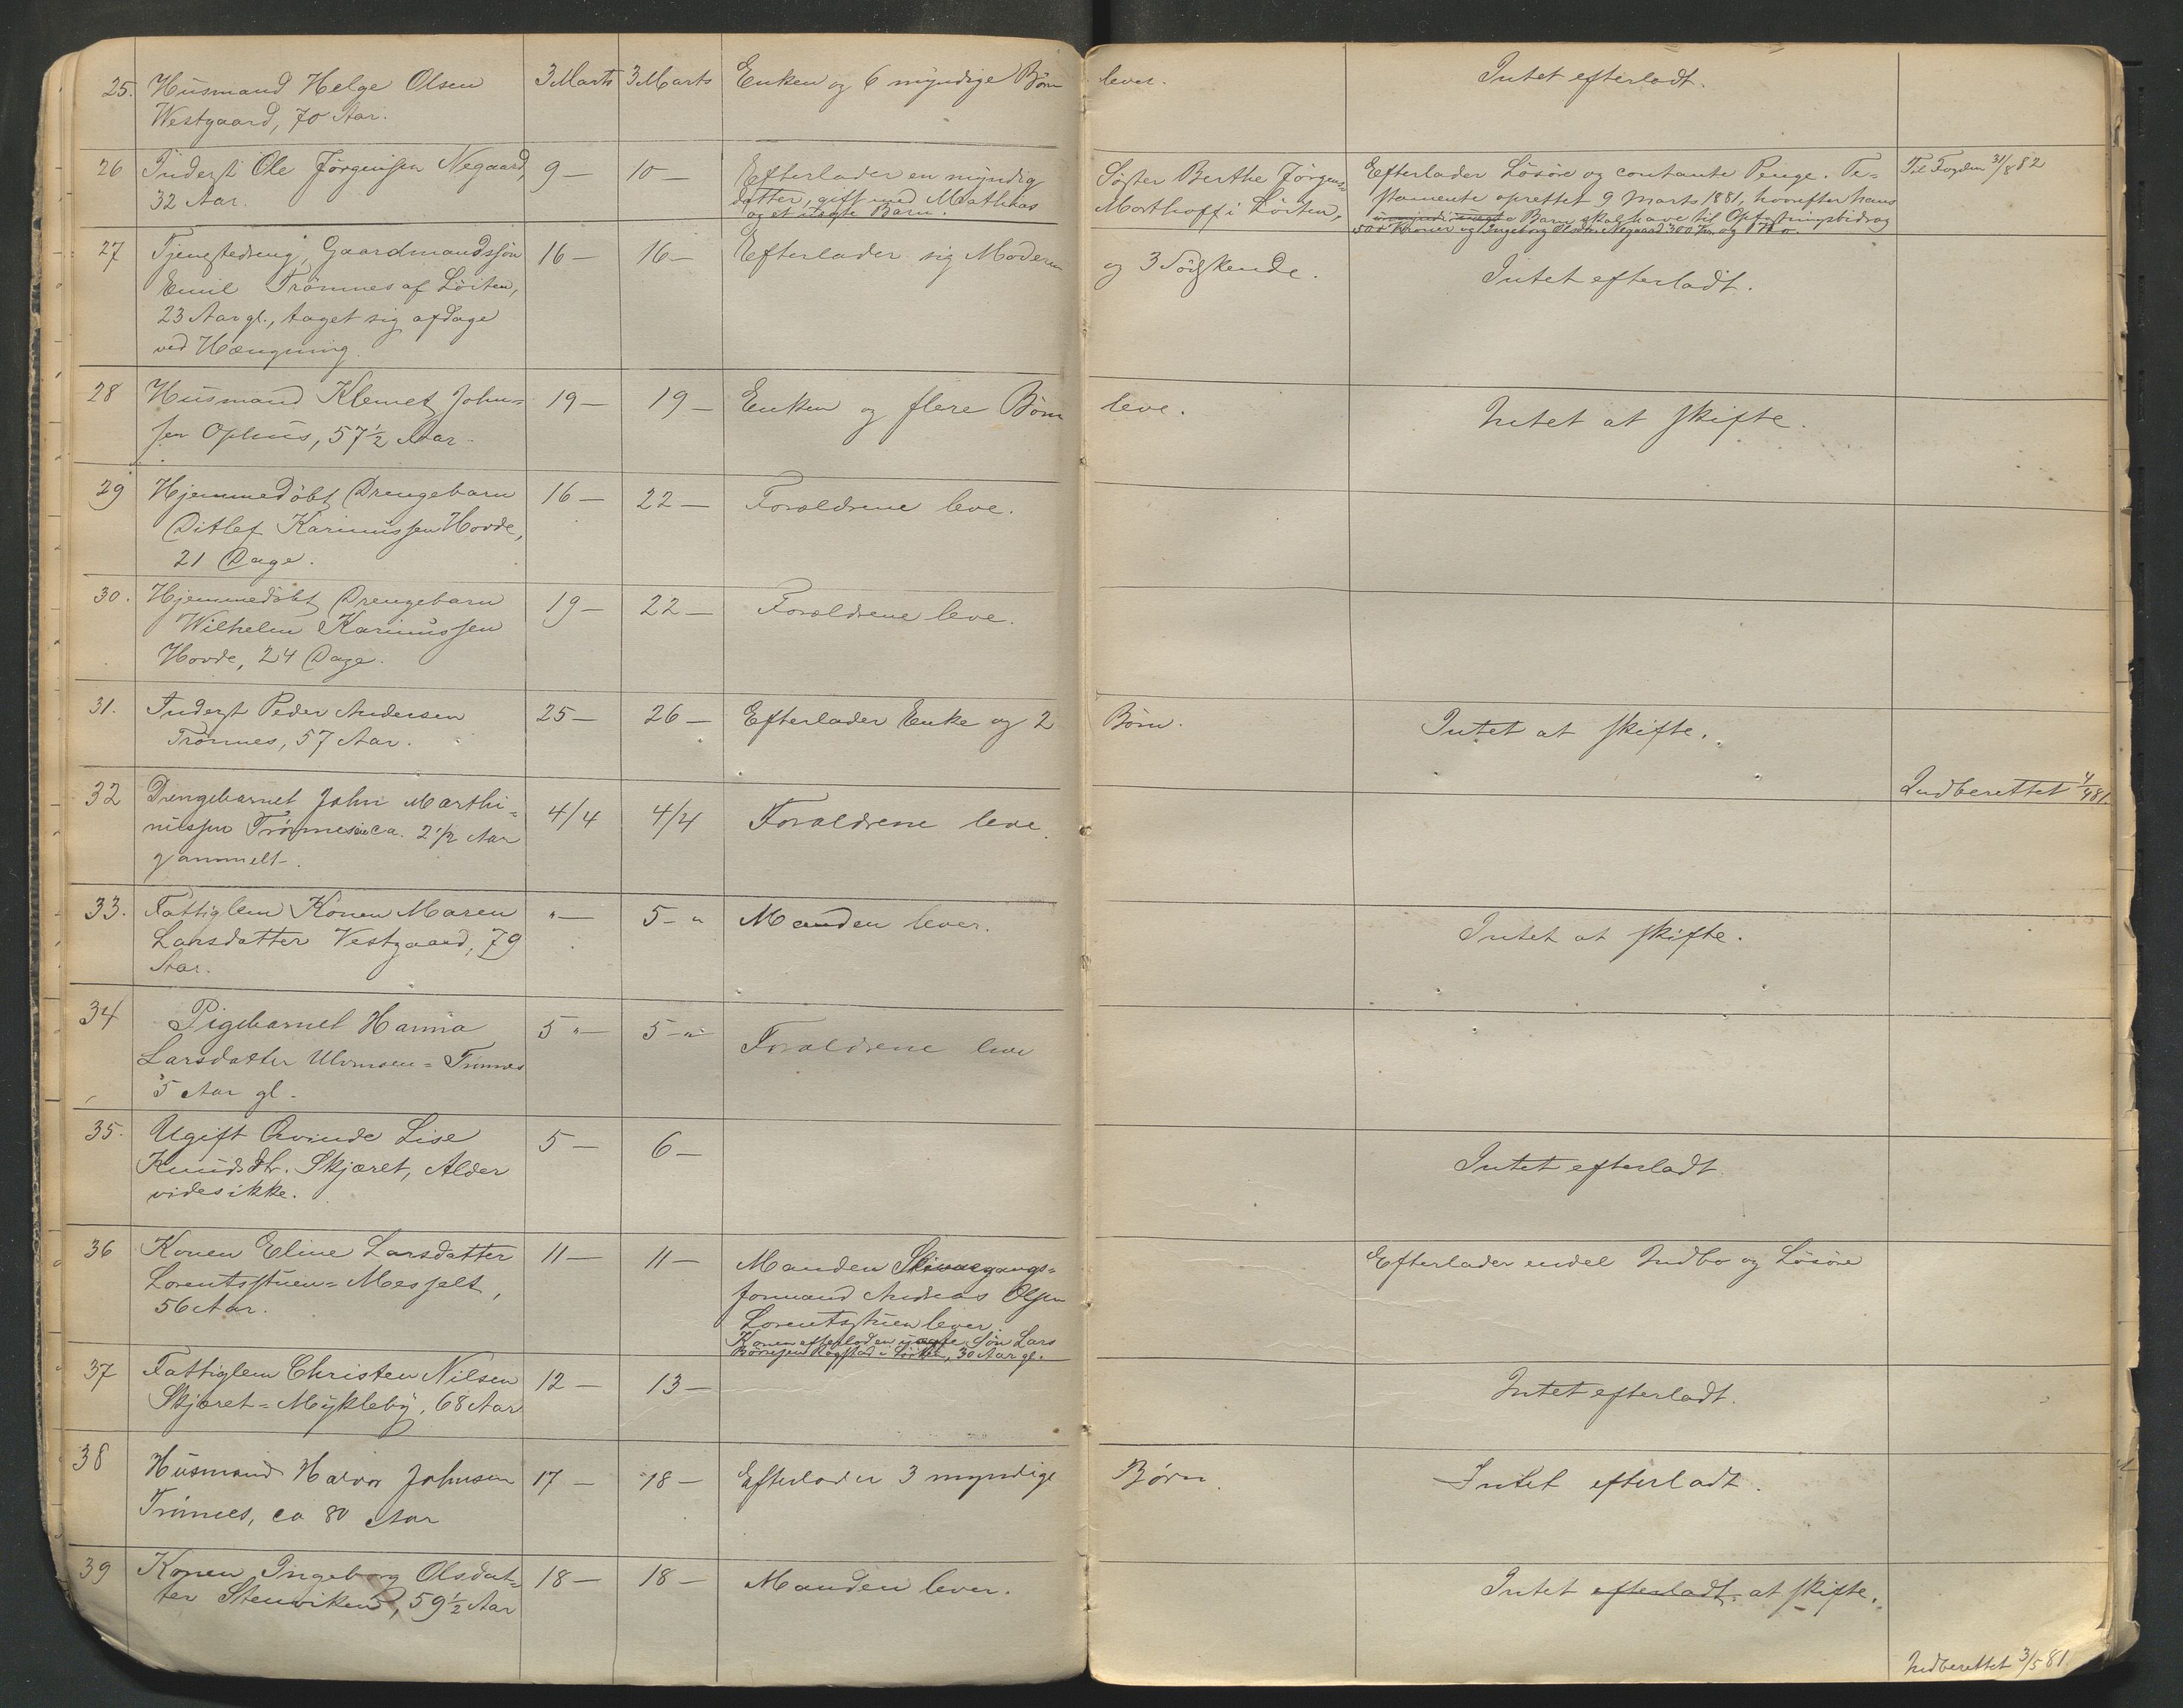 25. Husmand Helge Olsen 3 Marts 3 Marts Enken og 6 myndige Børn lever. Intet efterladt.
Westgaard, 70 Aar.
26 Inderst Ole Jørgenssen Negaard, 9 — 10 — Efterlader en myndig Søster Berthe Jörgens= Efterlader Lösöre og contante Penge. Te= Til Fogden 31/8 82
32 Aar. datter, gift med Mathias Morthoff i Löiten, stamente oprettet 9 Marts 1881, hvorefter hans
og et uægte Barn. Barn skal have til Opfostringsbidrag
500 Kroner og Ingeborg Olsdtr. Negaard 300 Kr. og
27 Tjenestedreng, Gaardmandssön 16 — 16 — Efterlader sig Moderen og 3 Södskende. Intet efterladt.
Emil Trönnes af Löiten,
23 Aar gl., taget sig afdage
ved Hængning.
28 Husmand Klemet John= 19 — 19 — Enken og flere Börn leve. Intet at skifte.
sen Ophus, 57 1/2 Aar.
29 Hjemmedöbt Drengebarn 16 — 22 — Forældrene leve.
Ditlef Karinussen Hovde,
21 Dage.
30. Hjemmedöbt Drengebarn 19 — 22 — Forældrene leve.
Wilhelm Karinussen
Hovde, 24 Dage.
31. Inderst Peder Andersen 25 — 26 — Efterlader Enke og 2 Börn. Intet at skifte.
Trönnes, 57 Aar.
Indberettet 4/4 81.
32 Drengebarnet John Marthi= 4/4 4/4 Forældrene leve.
nussen ca. 2 1/2 Aar
gammelt.
33. Fattiglem Konen Maren " — 5 - " Manden lever. Intet at skifte.
Larsdatter Vestgaard, 79
Aar.
34 Pigebarnet Hanna 5 " — 5 - " Forældrene leve
Larsdatter Ulvmoen = Trønnes
5 Aar gl.
35. Ugift Qvinde Lise 5 — 6 — Intet efterladt
Knudsdtr. Skjæret, Alder
vides ikke.
36 Konen Eline Larsdatter 11 — 11 — Manden Skivægangs= Efterlader endel Indbo og Lösöre
Lorentsstuen = Messelt, formand Andreas Olsen
56 Aar. Lorentsstuen lever.
Konen efterlod en uægte Sön Lars
Rogstad i, 30 Aar gl.
37 Fattiglem Christen Nilsen 12 — 13 — Intet efterladt.
Skjæret = Mykleby, 68 Aar
38 Husmand Halvor Johnsen 17 — 18 — Efterlader 3 myndige Børn. Intet efterladt.
Trønnes, ca 80 Aar
39 Konen Ingeborg Olsdat= 18 — 18 — Manden lever. Intet efterladt. at skifte.
ter Stenviken, 59 1/2 Aar
Indberettet 3/5 81.